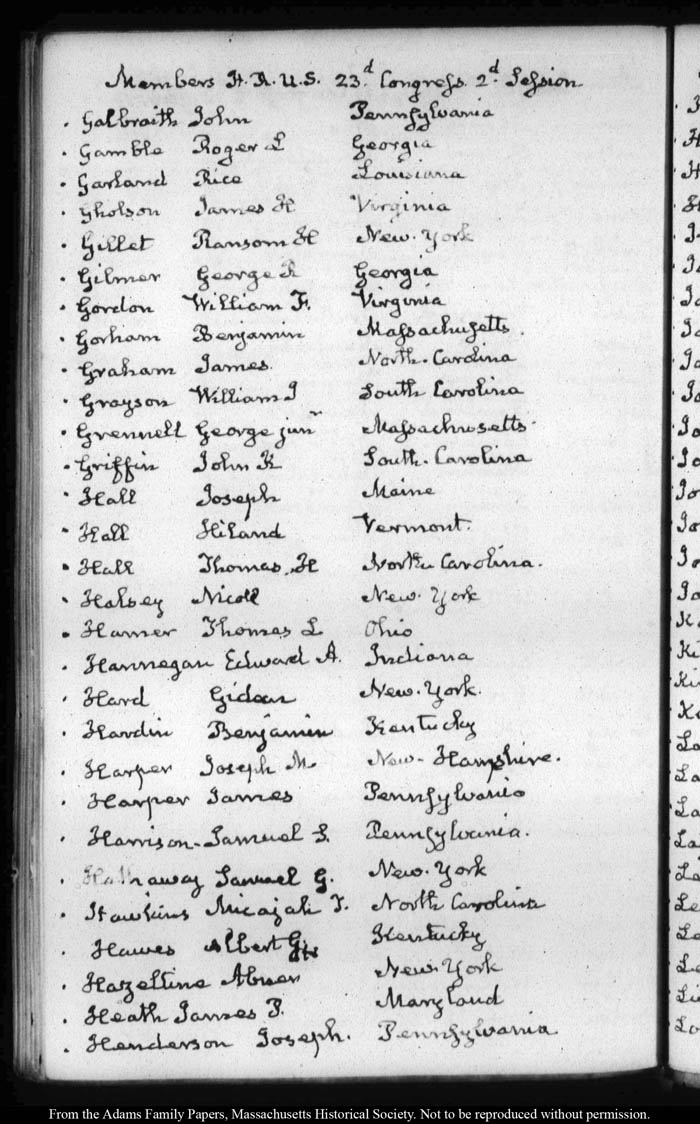 Members H.R.U.S. 23.d Congress. 2.d Session
. Galbraith John Pennsylvania
. Gamble Roger L Georgia
. Garland Rice Louisiana
. Gholson James H Virginia
. Gillet Ransom H New-York
. Gilmer George R Georgia
. Gordon William F. Virginia
. Gorham Benjamin Massachusetts.
. Graham James. North-Carolina
. Grayson William J South Carolina
. Grennell George junr Massachusetts
. Griffin John K South-Carolina
. Hall Joseph Maine
. Hall Hiland Vermont.
. Hall Thomas. H North Carolina.
. Halsey Nicoll New-York
. Hamer Thomas L Ohio
. Hannegan Edward A. Indiana
. Hard Gideon New-York.
. Hardin Benjamin Kentucky
. Harper Joseph M. New-Hampshire.
. Harper James Pennsylvania
. Harrison-Samuel S. Pennsylvania.
. Hathaway Samuel G. New-York
. Hawkins Micajah T. North Carolina
. Hawes Albert G. Kentucky
. Hazeltine Abner New-York
. Heath James P. Maryland
. Henderson Joseph. Pennsylvania
From the Adams Family Papers, Massachusetts Historical Society. Not to be reproduced without permission.